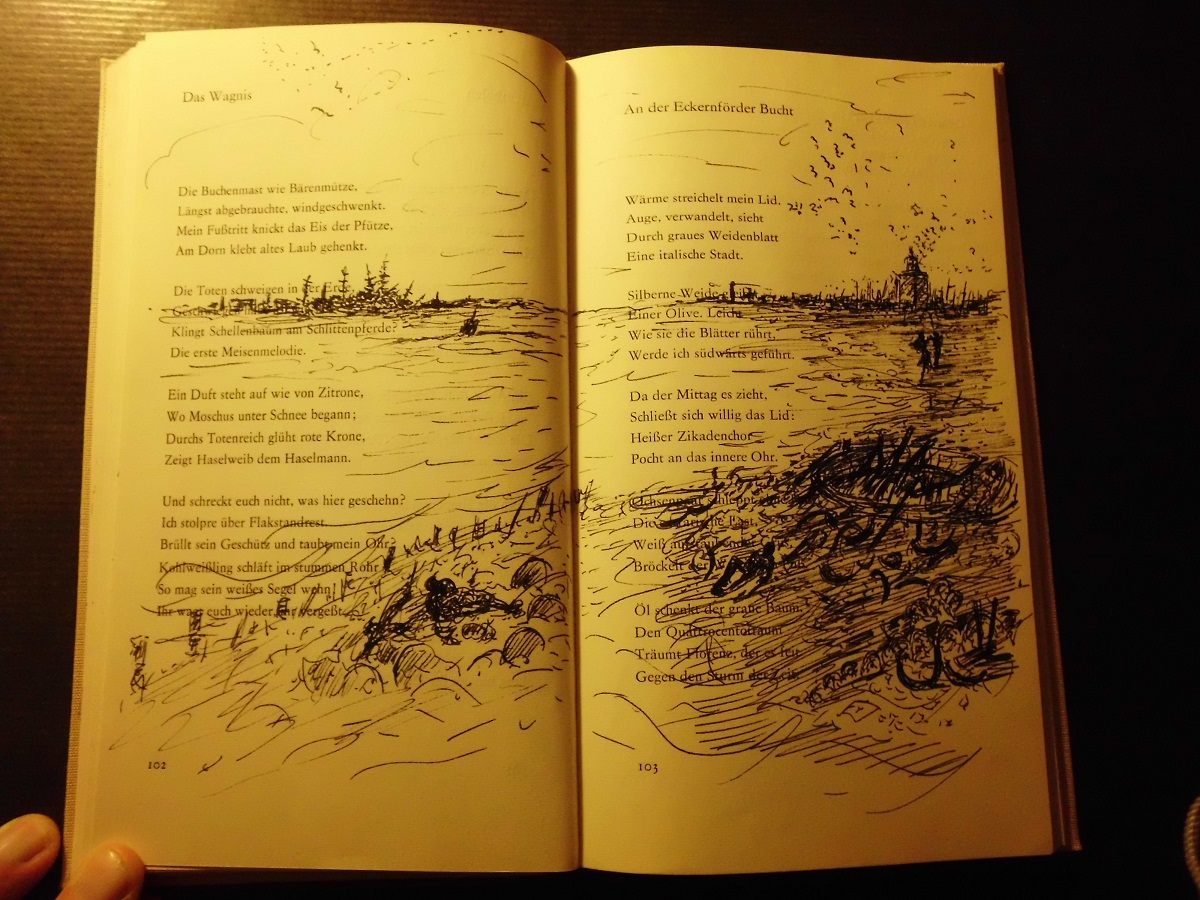 Das Wagnis
Die Buchenmast wie Bärenmütze,
Längst abgebrauchte, windgeschwenkt.
Mein Fußtritt knickt das Eis der Pfütze,
Am Dorn klebt altes Laub gehenkt.
Die Toten schweigen in der Erde,
Klingt Schellenbaum am Schlittenpferde?
Die erste Meisenmelodie.
Ein Duft steht auf wie von Zitrone,
Wo Moschus unter Schnee begann;
Durchs Totenreich glüht rote Krone,
Zeigt Haselweib dem Haselmann.
Und schreckt euch nicht, was hier geschehn?
Ich stolpre über Flakstandrest.
Brüllt sein Geschütz und taubt mein Ohr?
Kohlweißling schläft im stummen Rohr
So mag sein weißes Segel wehn!
Ihr wagt euch wieder, ihr vergeßt
102
An der Eckernförder Bucht
Wärme streichelt mein Lid.
Auge, verwandelt, sieht
Durch graues Weidenblatt
Eine italische Stadt.
Silberne Weide
Einer Olive. Leicht
Wie sie die Blätter rührt,
Werde ich südwärts geführt.
Da der Mittag es zieht,
Schließt sich willig das Lid:
Heißer Zikadenchor
Pocht an das innere Ohr.
Ochsenpaar schleppt
Die Last,
Weiß
Bröckelt der
Öl schenkt der graue Baum.
Den Quattrocentotraum
Träumt Florenz, der es feit
Gegen den Sturm der Zeit.
103